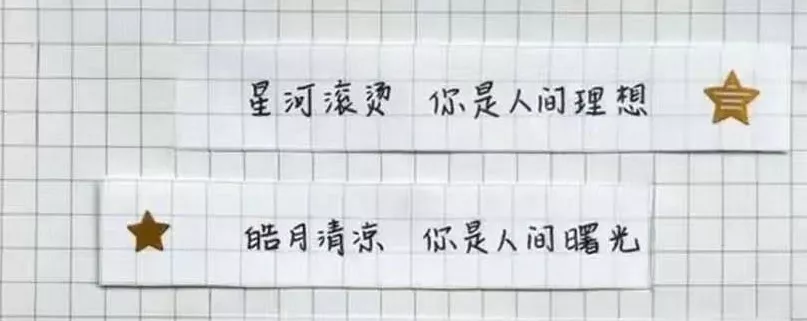 星河滚烫 你是人间理想
皓月清凉 你是人间曙光